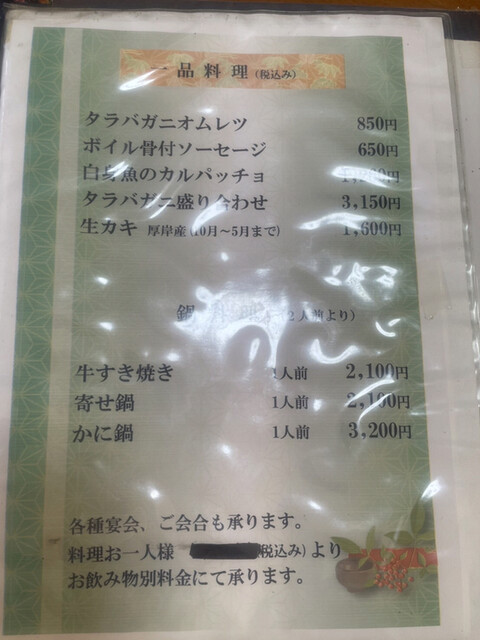 一品料理(税込み)
タラバガニオムレツ 850円
ボイル骨付ソーセージ 650円
白身魚のカルパッチョ
タラバガニ盛り合わせ 3,150円
生カキ 厚岸産(10月~5月まで) 1,600円
鍋 (2人前より)
牛すき焼き 1人前 2,100円
寄せ鍋 1人前 2,100円
かに鍋 1人前 3,200円
各種宴会、ご会合も承ります。
料理お一人様 (税込み)より
お飲み物別料金にて承ります。